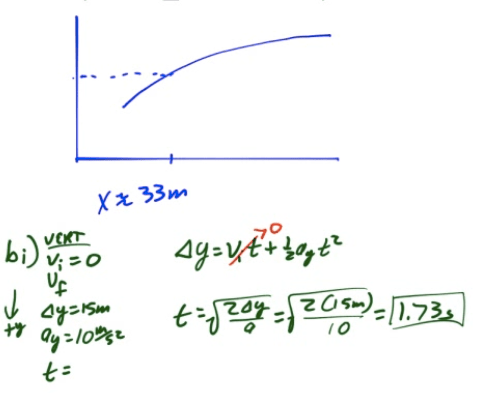 X ≈ 33m
bi) VERT
Vi = 0
Vf
↓ +y
Δy = 15m
ay = 10 m/s²
t =
Δy = Vit→0 + ½ayt²
t = √(2Δy/a) = √(2(15m)/10) = 1.73s